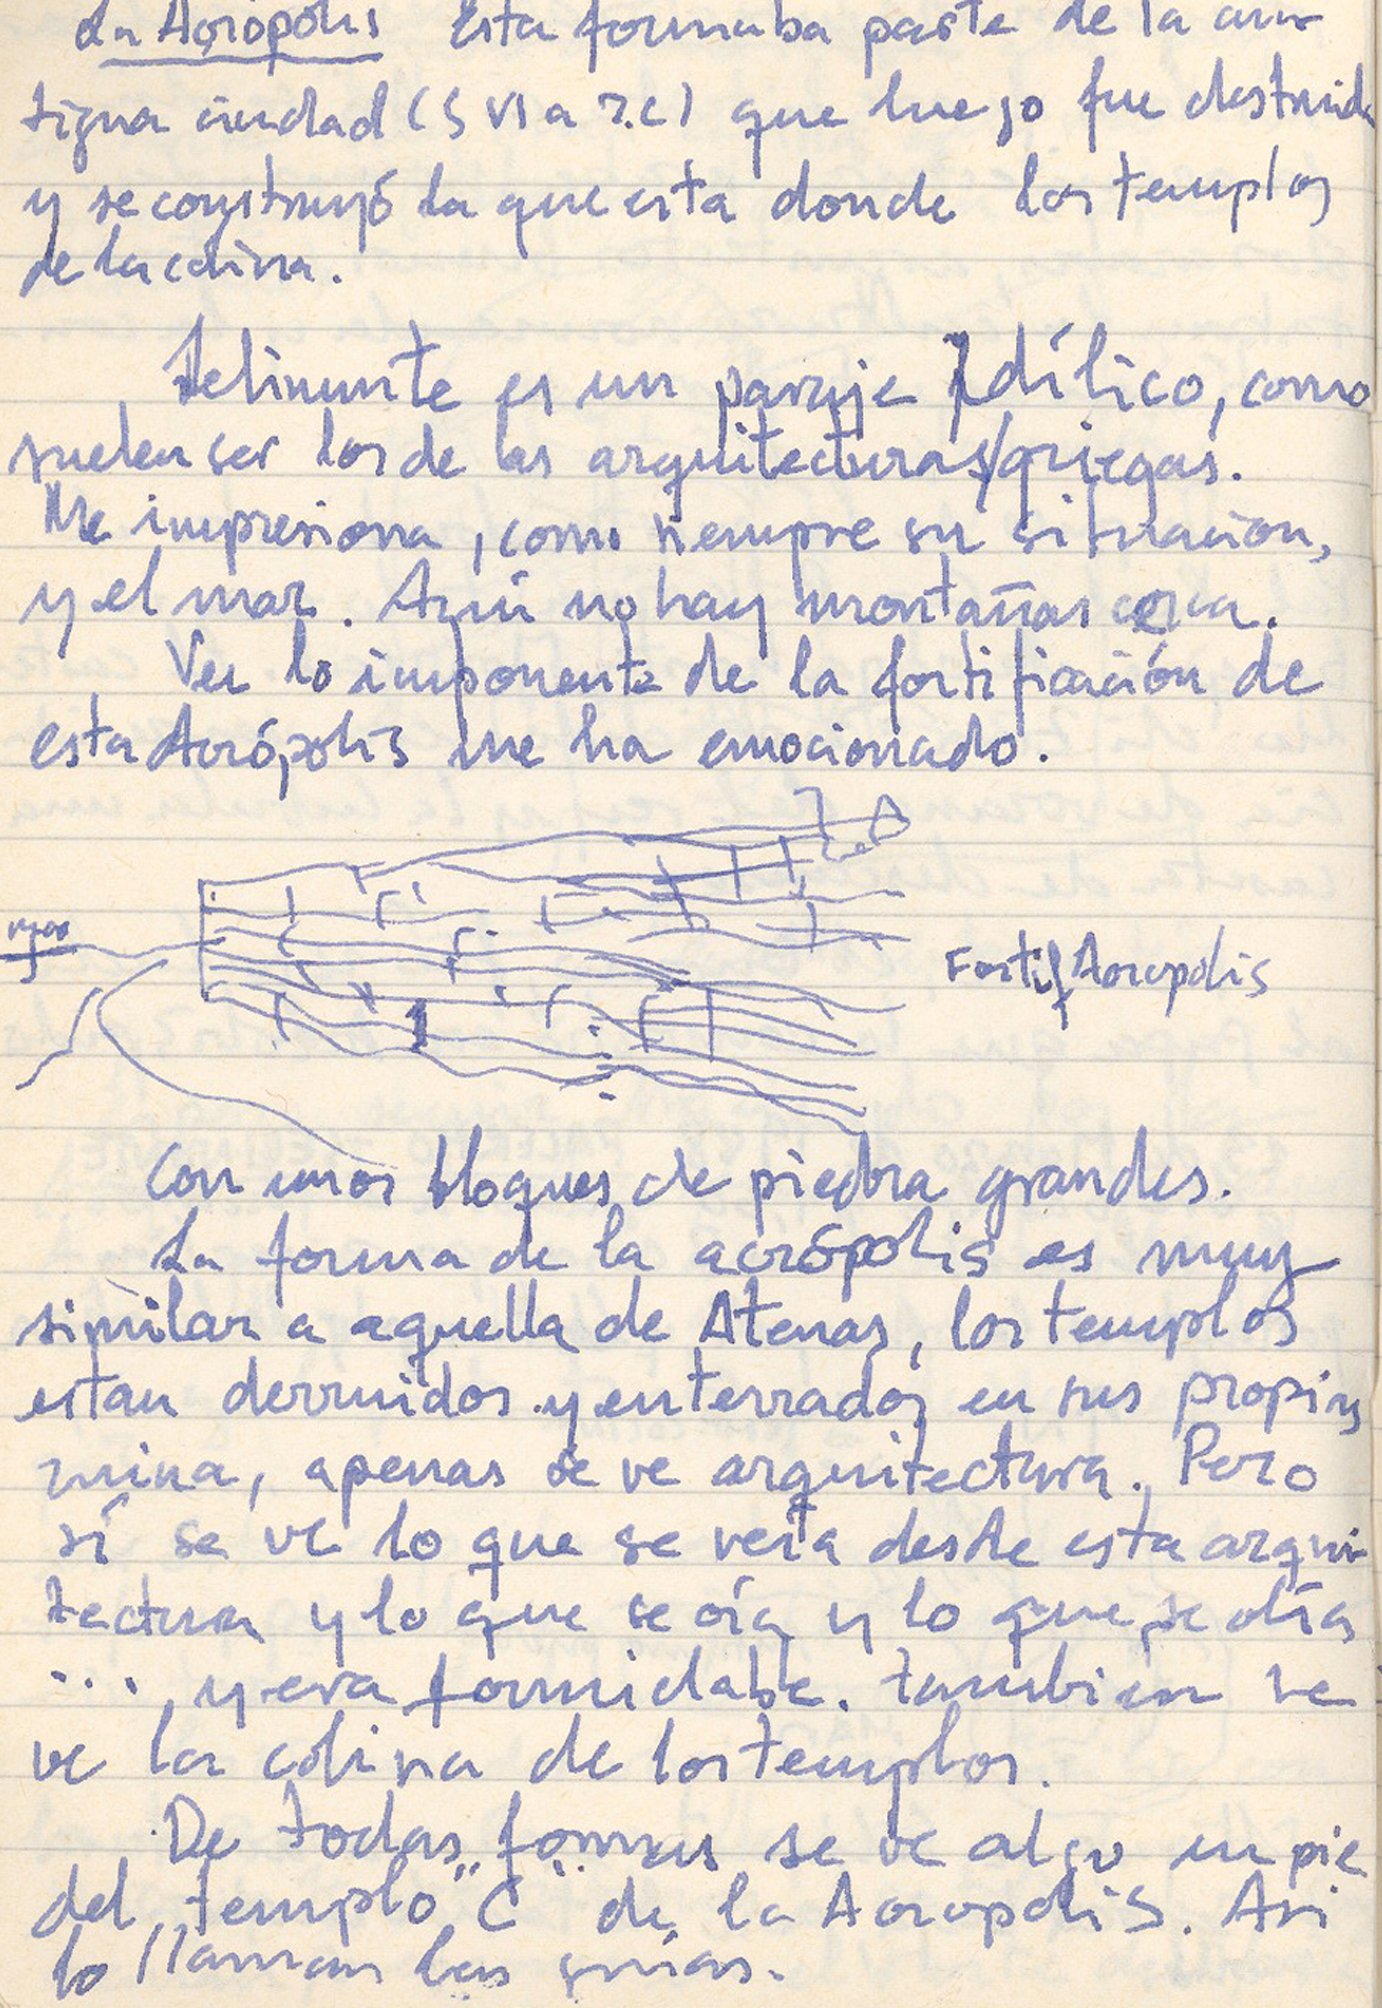 La Acrópolis Esta formaba parte de la an-
tigua ciudad (S VI a J.C) que luego fue destruida
y se construyó la que esta donde los templos
de la colina.
Selinunte es un paraje Idílico, como
suelen ser los de las arquitecturas/griegas.
Me impresiona, como siempre su situación,
y el mar. Aquí no hay montañas cerca.
Ver lo imponente de la fortificación de
esta Acrópolis me ha emocionado.
mar
Fortif Acropolis
Con unos bloques de piedra grandes.
La forma de la acrópolis es muy
similar a aquella de Atenas, los templos
estan derruidos y enterrados en sus propias
ruina, apenas se ve arquitectura. Pero
sí se ve lo que se veía desde esta arqui-
tectura y lo que se oía y lo que se olía
... y era formidable. también se
ve la colina de los templos.
De todas formas se ve algo en pie
del templo "C" de la Acropolis. Asi
lo llaman las guías.